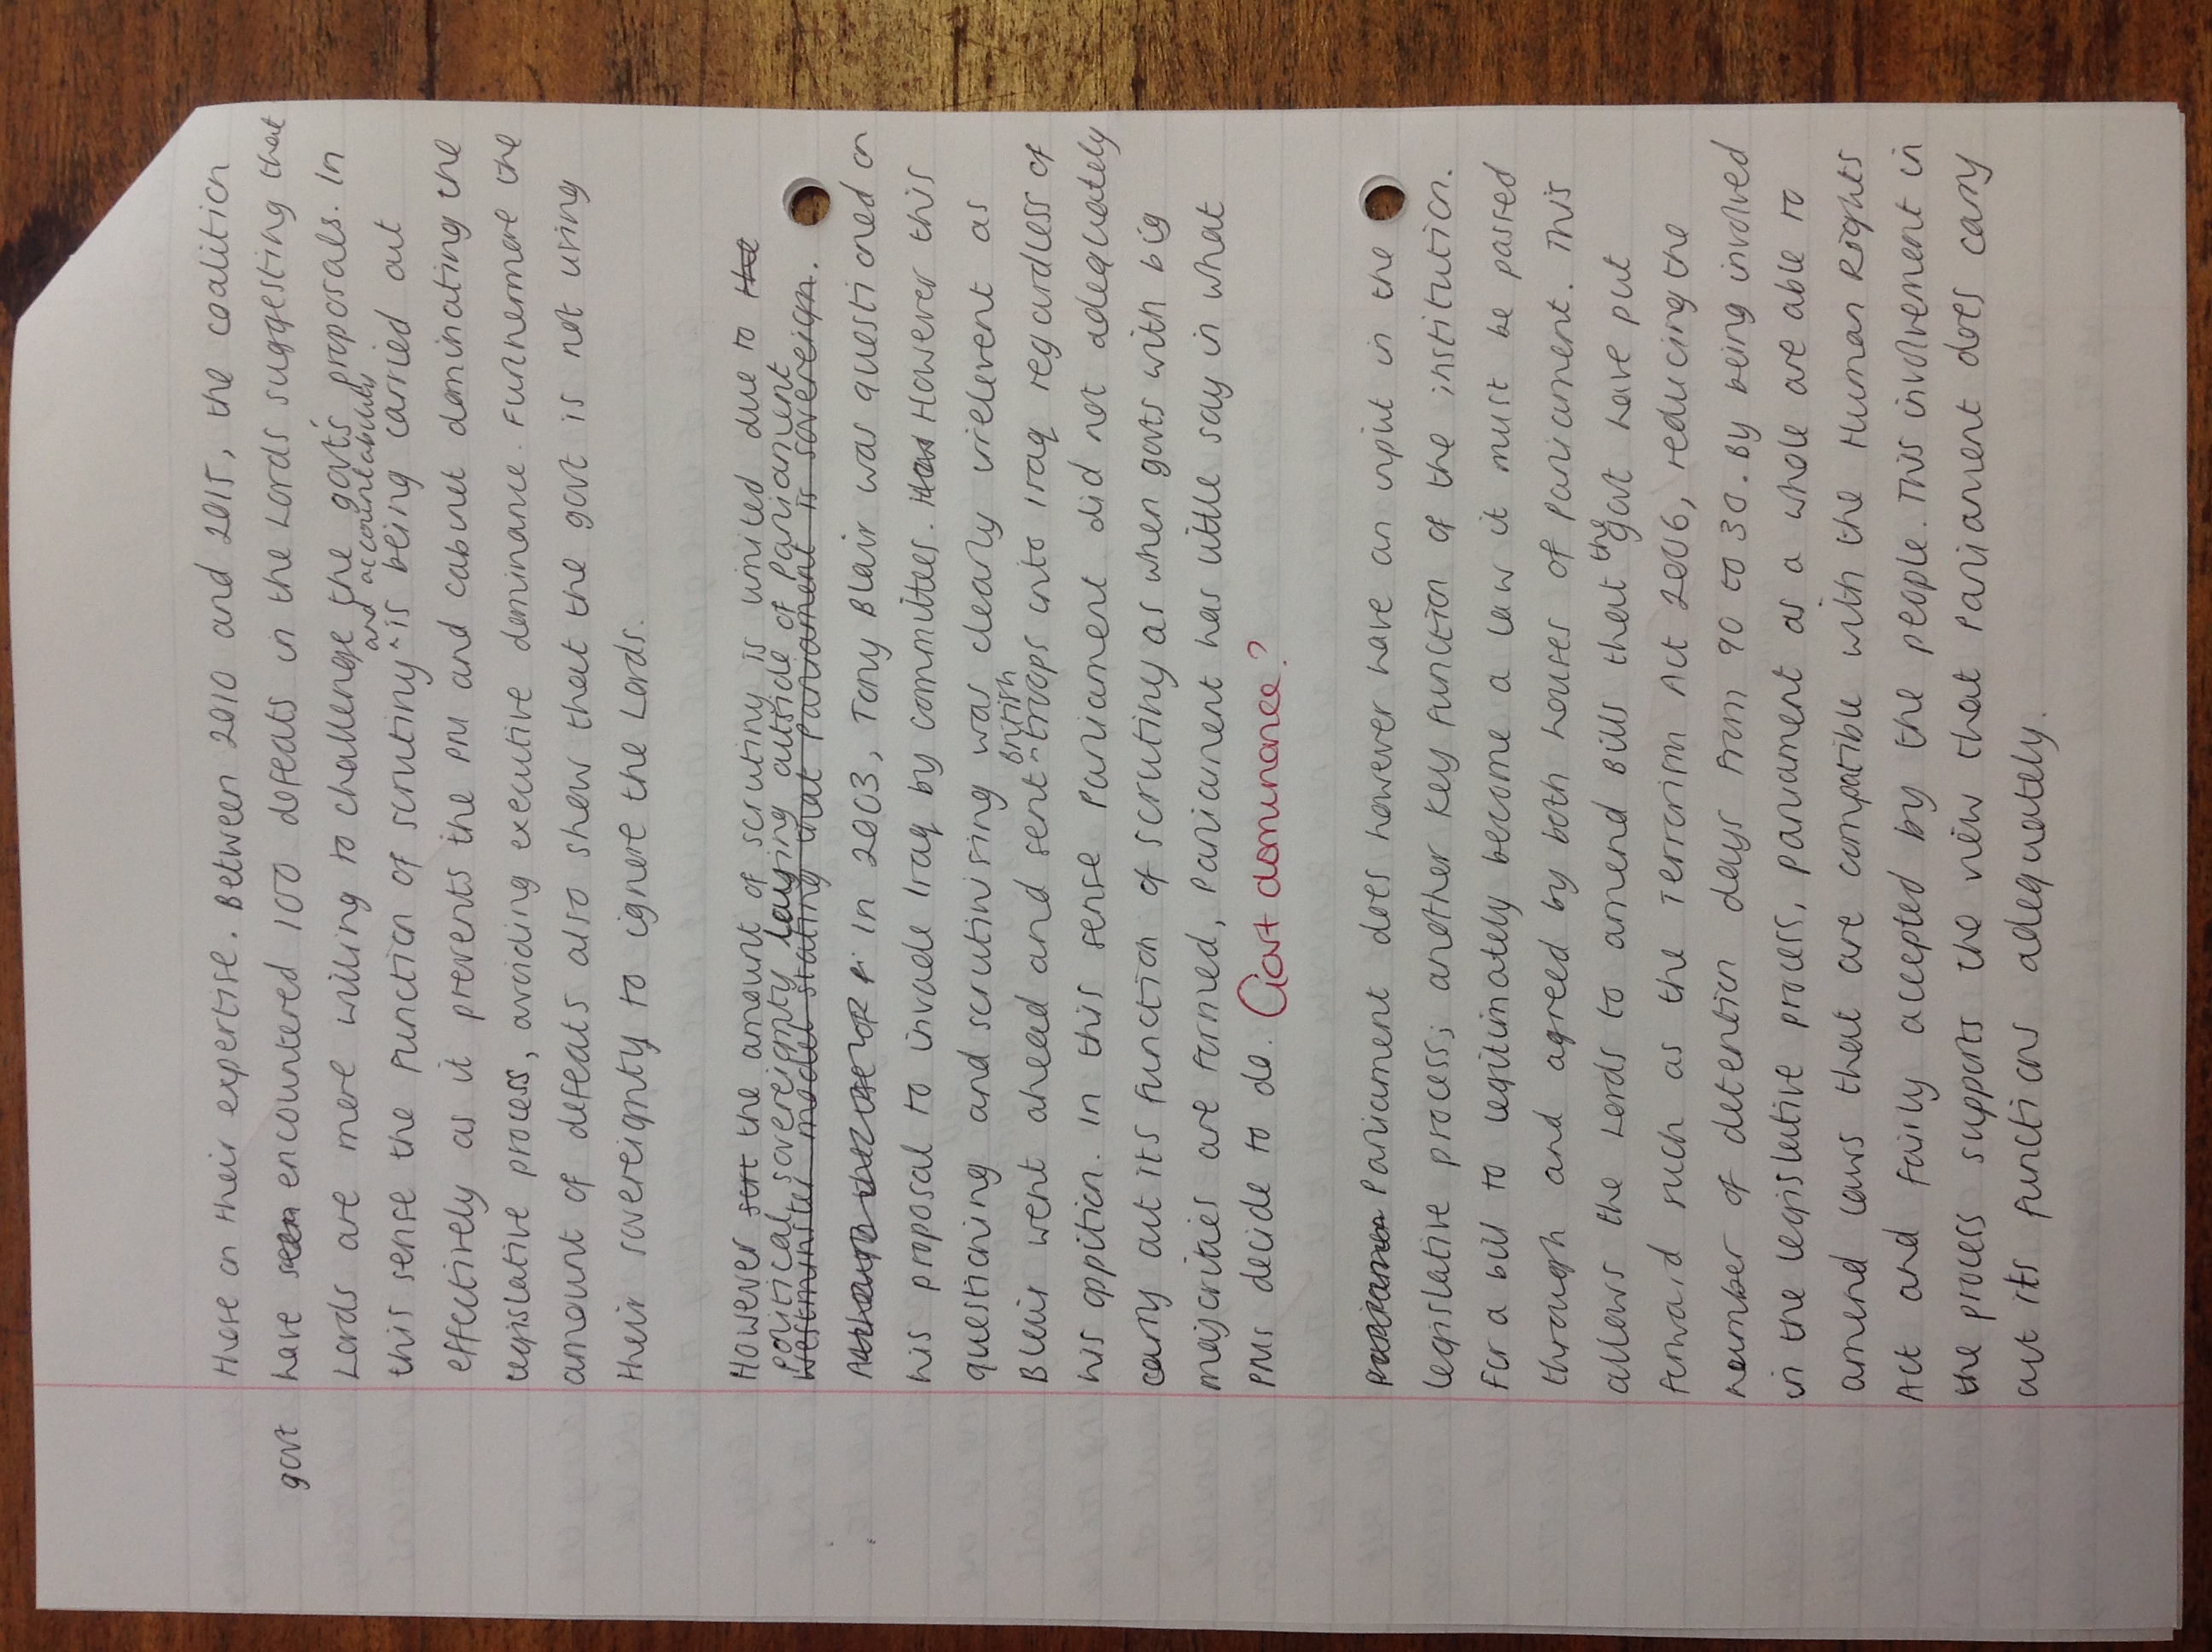 these on their expertise. Between 2010 and 2015, the coalition
govt have seen encountered 100 defeats in the Lords suggesting that
Lords are more willing to challenge the govt's proposals. In
and accountability
this sense the function of scrutiny ^ is being carried out
effectively as it prevents the PM and cabinet dominating the
legislative process, avoiding executive dominance. Furthermore the
amount of defeats also show that the govt is not using
their sovereignty to ignore the Lords.
However the amount of scrutiny is limited due to the
political sovereignty laying outside of Parliament
Westminster model stating that parliament is sovereign.
In 2003, Tony Blair was questioned on
his proposal to invade Iraq by committees. How However this
questioning and scrutinising was clearly irrelevent as
british
Blair went ahead and sent ^ troops into Iraq regardless of
his oppition. In this sense Parliament did not adequately
carry out its function of scrutiny as when govts with big
majorities are formed, Parliament has little say in what
PMs decide to do. Govt dominance?
Parliament does however have an input in the
legislative process; another key function of the institution.
For a bill to legitimately become a law it must be passed
through and agreed by both houses of Parliament. This
allows the Lords to amend Bills that the govt have put
forward such as the Terrorism Act 2006, reducing the
number of detention days from 90 to 30. By being involved
in the legislative process, parliament as a whole are able to
amend laws that are compatible with the Human Rights
Act and fairly accepted by the people. This involvement in
the process supports the view that Parliament does carry
out its functions adequately.